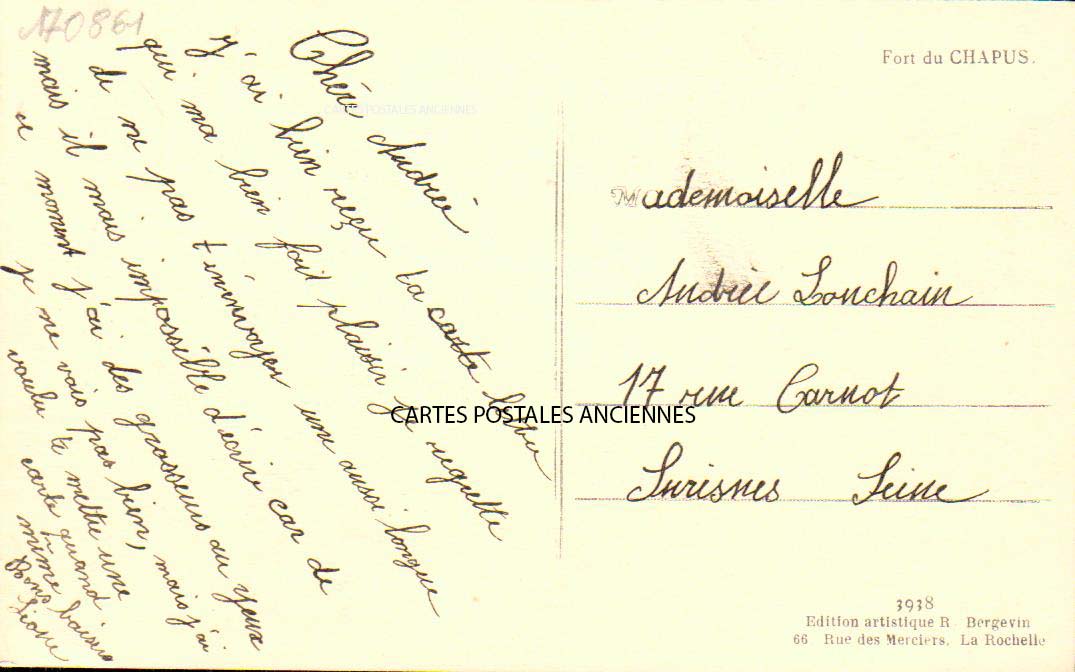 170861
Chère Andrée
J'ai bien reçu ta carte lettre
qui ma bien fait plaisir je regrette
de ne pas t'envoyer une aussi longue
mais il mais impossible d'écrire car de
ce moment j'ai des grosseurs au yeux
je ne vois pas bien, mais j'ai
voulu te mettre une
carte quand
même
Bons baisers
CARTES POSTALES ANCIENNES
CARTES POSTALES ANCIENNES
Fort du CHAPUS.
Mademoiselle
Andrée Lonchain
17 rue Carnot
Surisnes Seine
3938
Edition artistique R. Bergevin
66 Rue des Merciers, La Rochelle